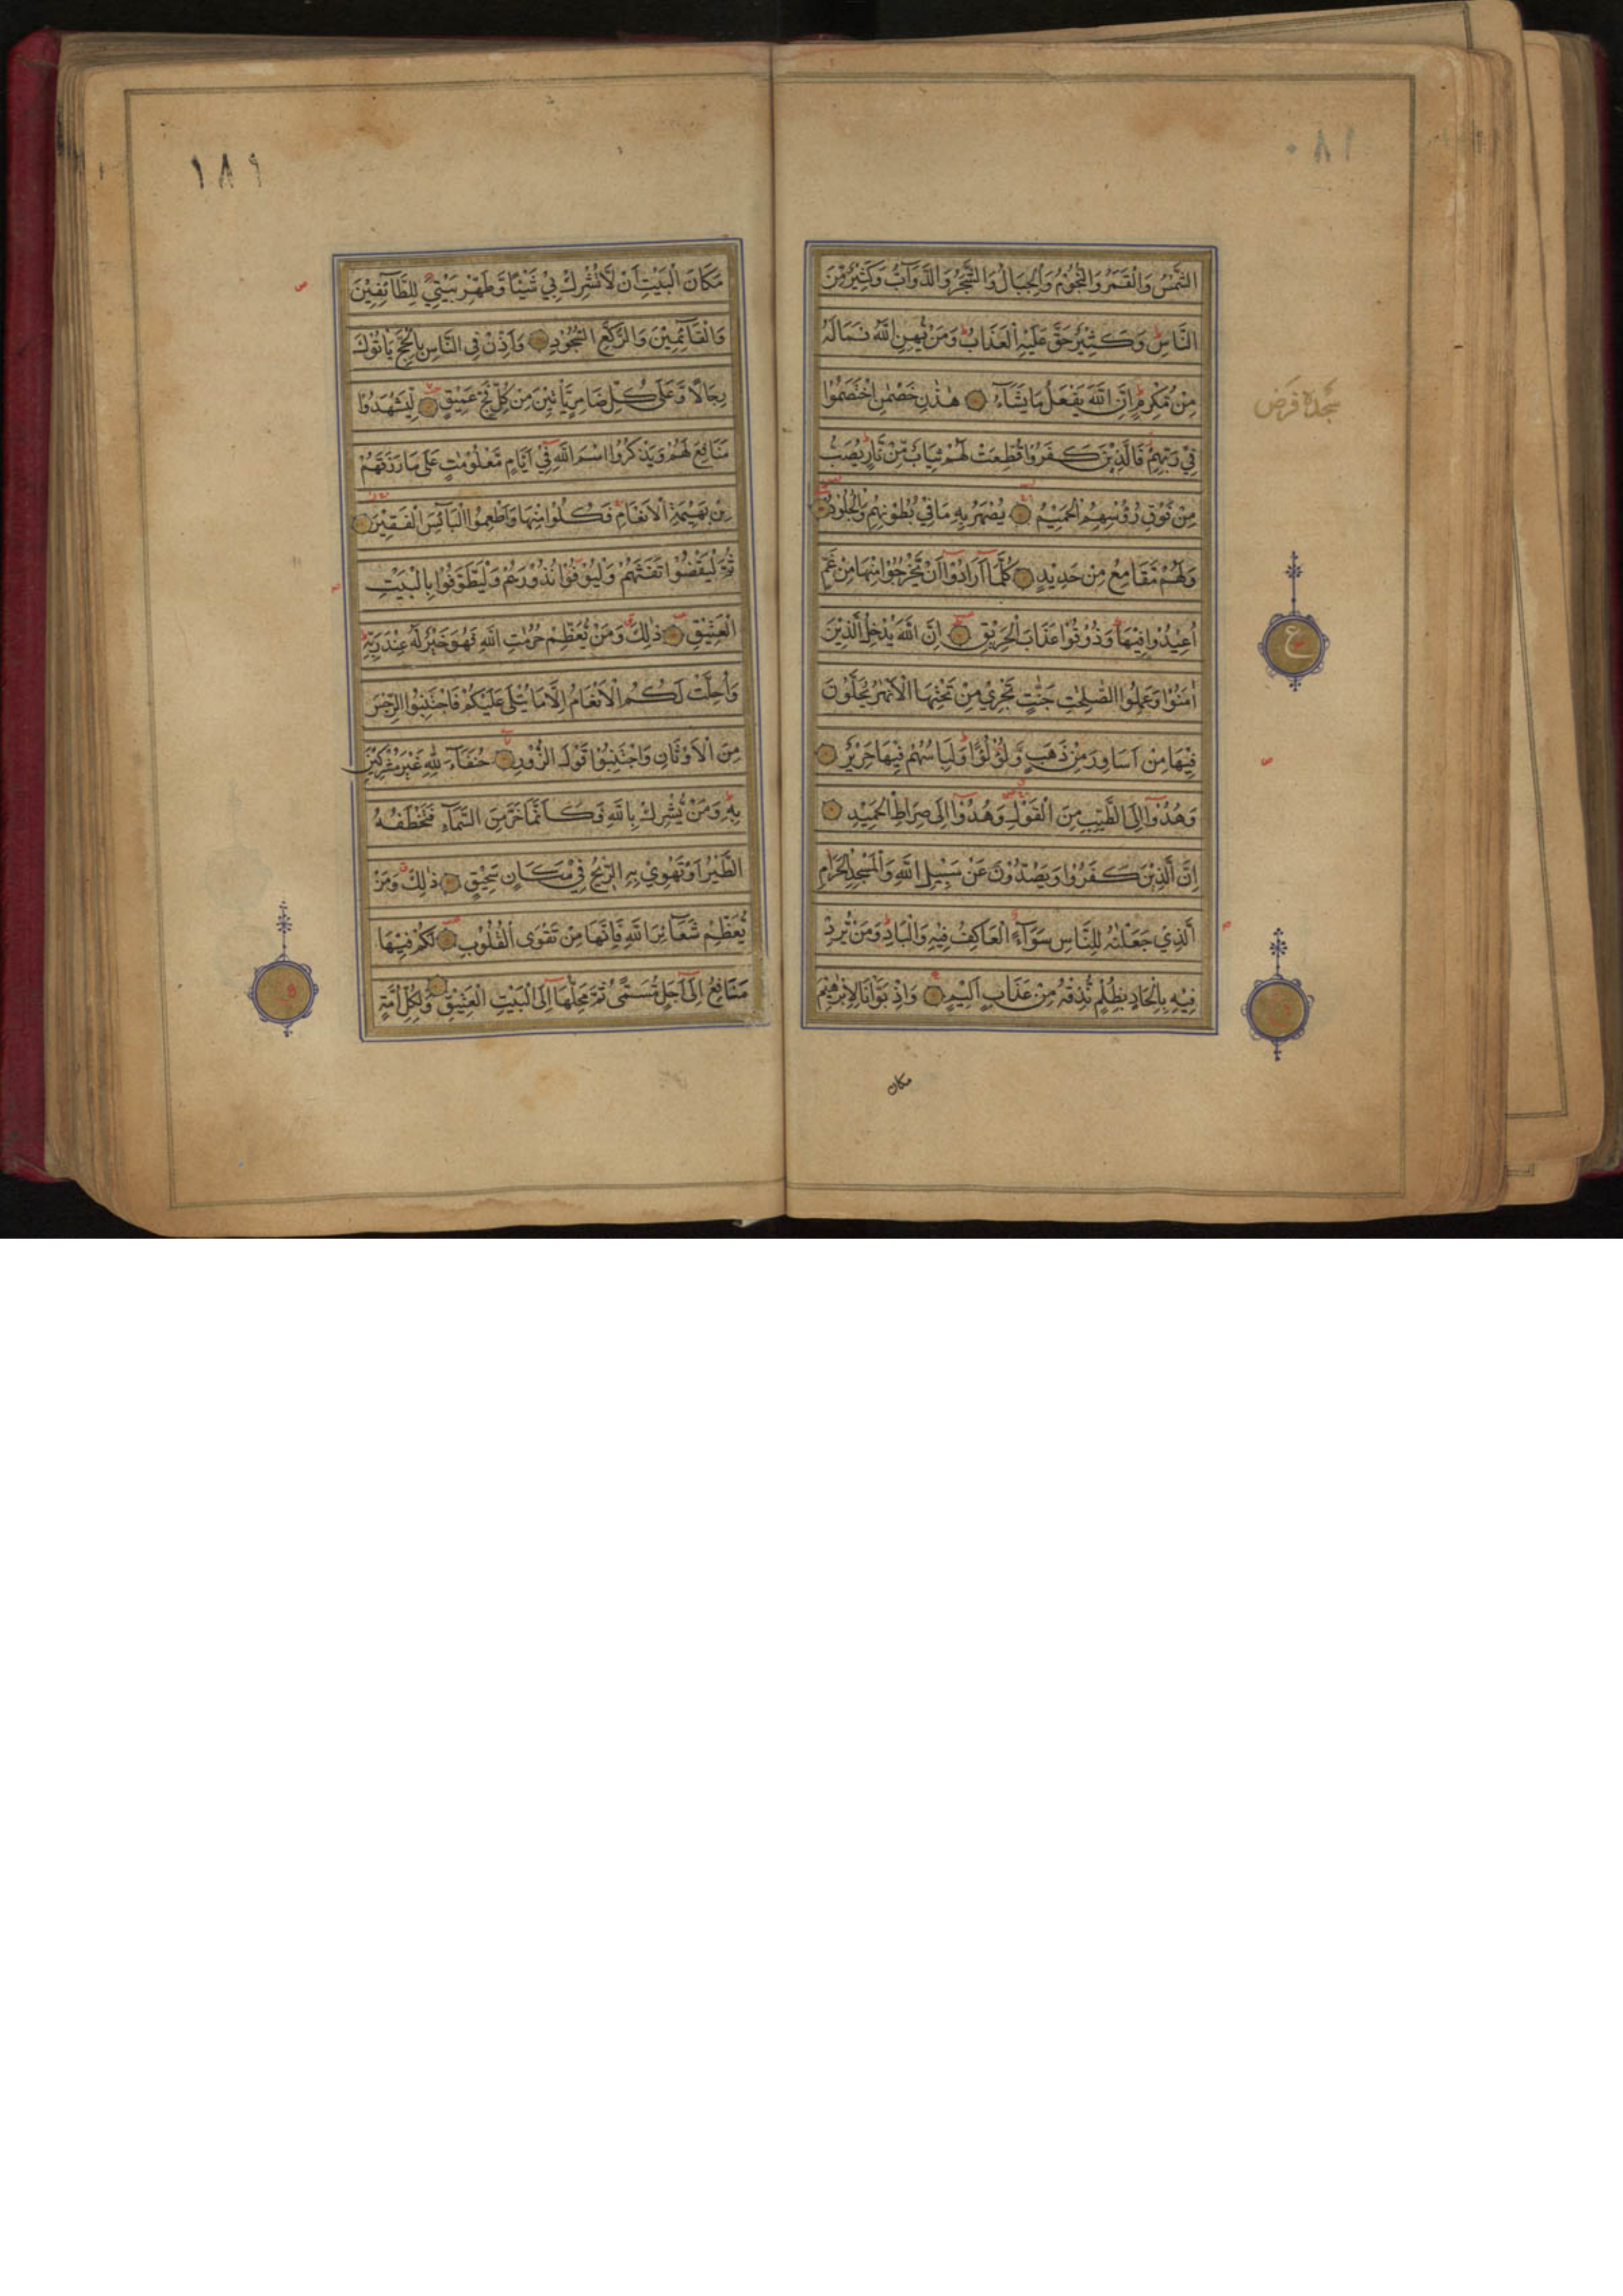 الشَّمْسُ وَالْقَمَرُ وَالنُّجُوْمُ وَالْجِبَالُ وَالشَّجَرُ وَالدَّوَآبُّ وَكَثِيْرٌ مِّنَ
النَّاسِ وَكَثِيْرٌ حَقَّ عَلَيْهِ الْعَذَابُ وَمَنْ يُّهِنِ اللّٰهُ فَمَا لَهٗ
مِنْ مُّكْرِمٍ اِنَّ اللّٰهَ يَفْعَلُ مَا يَشَآءُ هٰذٰنِ خَصْمٰنِ اخْتَصَمُوْا
فِيْ رَبِّهِمْ فَالَّذِيْنَ كَفَرُوْا قُطِّعَتْ لَهُمْ ثِيَابٌ مِّنْ نَّارٍ يُصَبُّ
مِنْ فَوْقِ رُؤُسِهِمُ الْحَمِيْمُ يُصْهَرُ بِهٖ مَا فِيْ بُطُوْنِهِمْ وَالْجُلُوْدُ
وَلَهُمْ مَّقَامِعُ مِنْ حَدِيْدٍ كُلَّمَآ اَرَادُوْٓا اَنْ يَّخْرُجُوْا مِنْهَا مِنْ غَمٍّ
اُعِيْدُوْا فِيْهَا وَذُوْقُوْا عَذَابَ الْحَرِيْقِ اِنَّ اللّٰهَ يُدْخِلُ الَّذِيْنَ
اٰمَنُوْا وَعَمِلُوا الصّٰلِحٰتِ جَنّٰتٍ تَجْرِيْ مِنْ تَحْتِهَا الْاَنْهٰرُ يُحَلَّوْنَ
فِيْهَا مِنْ اَسَاوِرَ مِنْ ذَهَبٍ وَّلُؤْلُؤًا وَلِبَاسُهُمْ فِيْهَا حَرِيْرٌ
وَهُدُوْٓا اِلَى الطَّيِّبِ مِنَ الْقَوْلِ وَهُدُوْٓا اِلٰى صِرَاطِ الْحَمِيْدِ
اِنَّ الَّذِيْنَ كَفَرُوْا وَيَصُدُّوْنَ عَنْ سَبِيْلِ اللّٰهِ وَالْمَسْجِدِ الْحَرَامِ
الَّذِيْ جَعَلْنٰهُ لِلنَّاسِ سَوَآءً الْعَاكِفُ فِيْهِ وَالْبَادِ وَمَنْ يُّرِدْ
فِيْهِ بِاِلْحَادٍ بِظُلْمٍ نُّذِقْهُ مِنْ عَذَابٍ اَلِيْمٍ وَاِذْ بَوَّاْنَا لِاِبْرٰهِيْمَ
مكان
سجدة فرض
ع
١٨٩
مَكَانَ الْبَيْتِ اَنْ لَّا تُشْرِكْ بِيْ شَيْئًا وَّطَهِّرْ بَيْتِيَ لِلطَّآئِفِيْنَ
وَالْقَآئِمِيْنَ وَالرُّكَّعِ السُّجُوْدِ وَاَذِّنْ فِى النَّاسِ بِالْحَجِّ يَاْتُوْكَ
رِجَالًا وَّعَلٰى كُلِّ ضَامِرٍ يَّاْتِيْنَ مِنْ كُلِّ فَجٍّ عَمِيْقٍ لِّيَشْهَدُوْا
مَنَافِعَ لَهُمْ وَيَذْكُرُوا اسْمَ اللّٰهِ فِيْٓ اَيَّامٍ مَّعْلُوْمٰتٍ عَلٰى مَا رَزَقَهُمْ
مِّنْ بَهِيْمَةِ الْاَنْعَامِ فَكُلُوْا مِنْهَا وَاَطْعِمُوا الْبَآئِسَ الْفَقِيْرَ
ثُمَّ لْيَقْضُوْا تَفَثَهُمْ وَلْيُوْفُوْا نُذُوْرَهُمْ وَلْيَطَّوَّفُوْا بِالْبَيْتِ
الْعَتِيْقِ ذٰلِكَ وَمَنْ يُّعَظِّمْ حُرُمٰتِ اللّٰهِ فَهُوَ خَيْرٌ لَّهٗ عِنْدَ رَبِّهٖ
وَاُحِلَّتْ لَكُمُ الْاَنْعَامُ اِلَّا مَا يُتْلٰى عَلَيْكُمْ فَاجْتَنِبُوا الرِّجْسَ
مِنَ الْاَوْثَانِ وَاجْتَنِبُوْا قَوْلَ الزُّوْرِ حُنَفَآءَ لِلّٰهِ غَيْرَ مُشْرِكِيْنَ
بِهٖ وَمَنْ يُّشْرِكْ بِاللّٰهِ فَكَاَنَّمَا خَرَّ مِنَ السَّمَآءِ فَتَخْطَفُهُ
الطَّيْرُ اَوْ تَهْوِيْ بِهِ الرِّيْحُ فِيْ مَكَانٍ سَحِيْقٍ ذٰلِكَ وَمَنْ
يُّعَظِّمْ شَعَآئِرَ اللّٰهِ فَاِنَّهَا مِنْ تَقْوَى الْقُلُوْبِ لَكُمْ فِيْهَا
مَنَافِعُ اِلٰٓى اَجَلٍ مُّسَمًّى ثُمَّ مَحِلُّهَآ اِلَى الْبَيْتِ الْعَتِيْقِ وَلِكُلِّ اُمَّةٍ